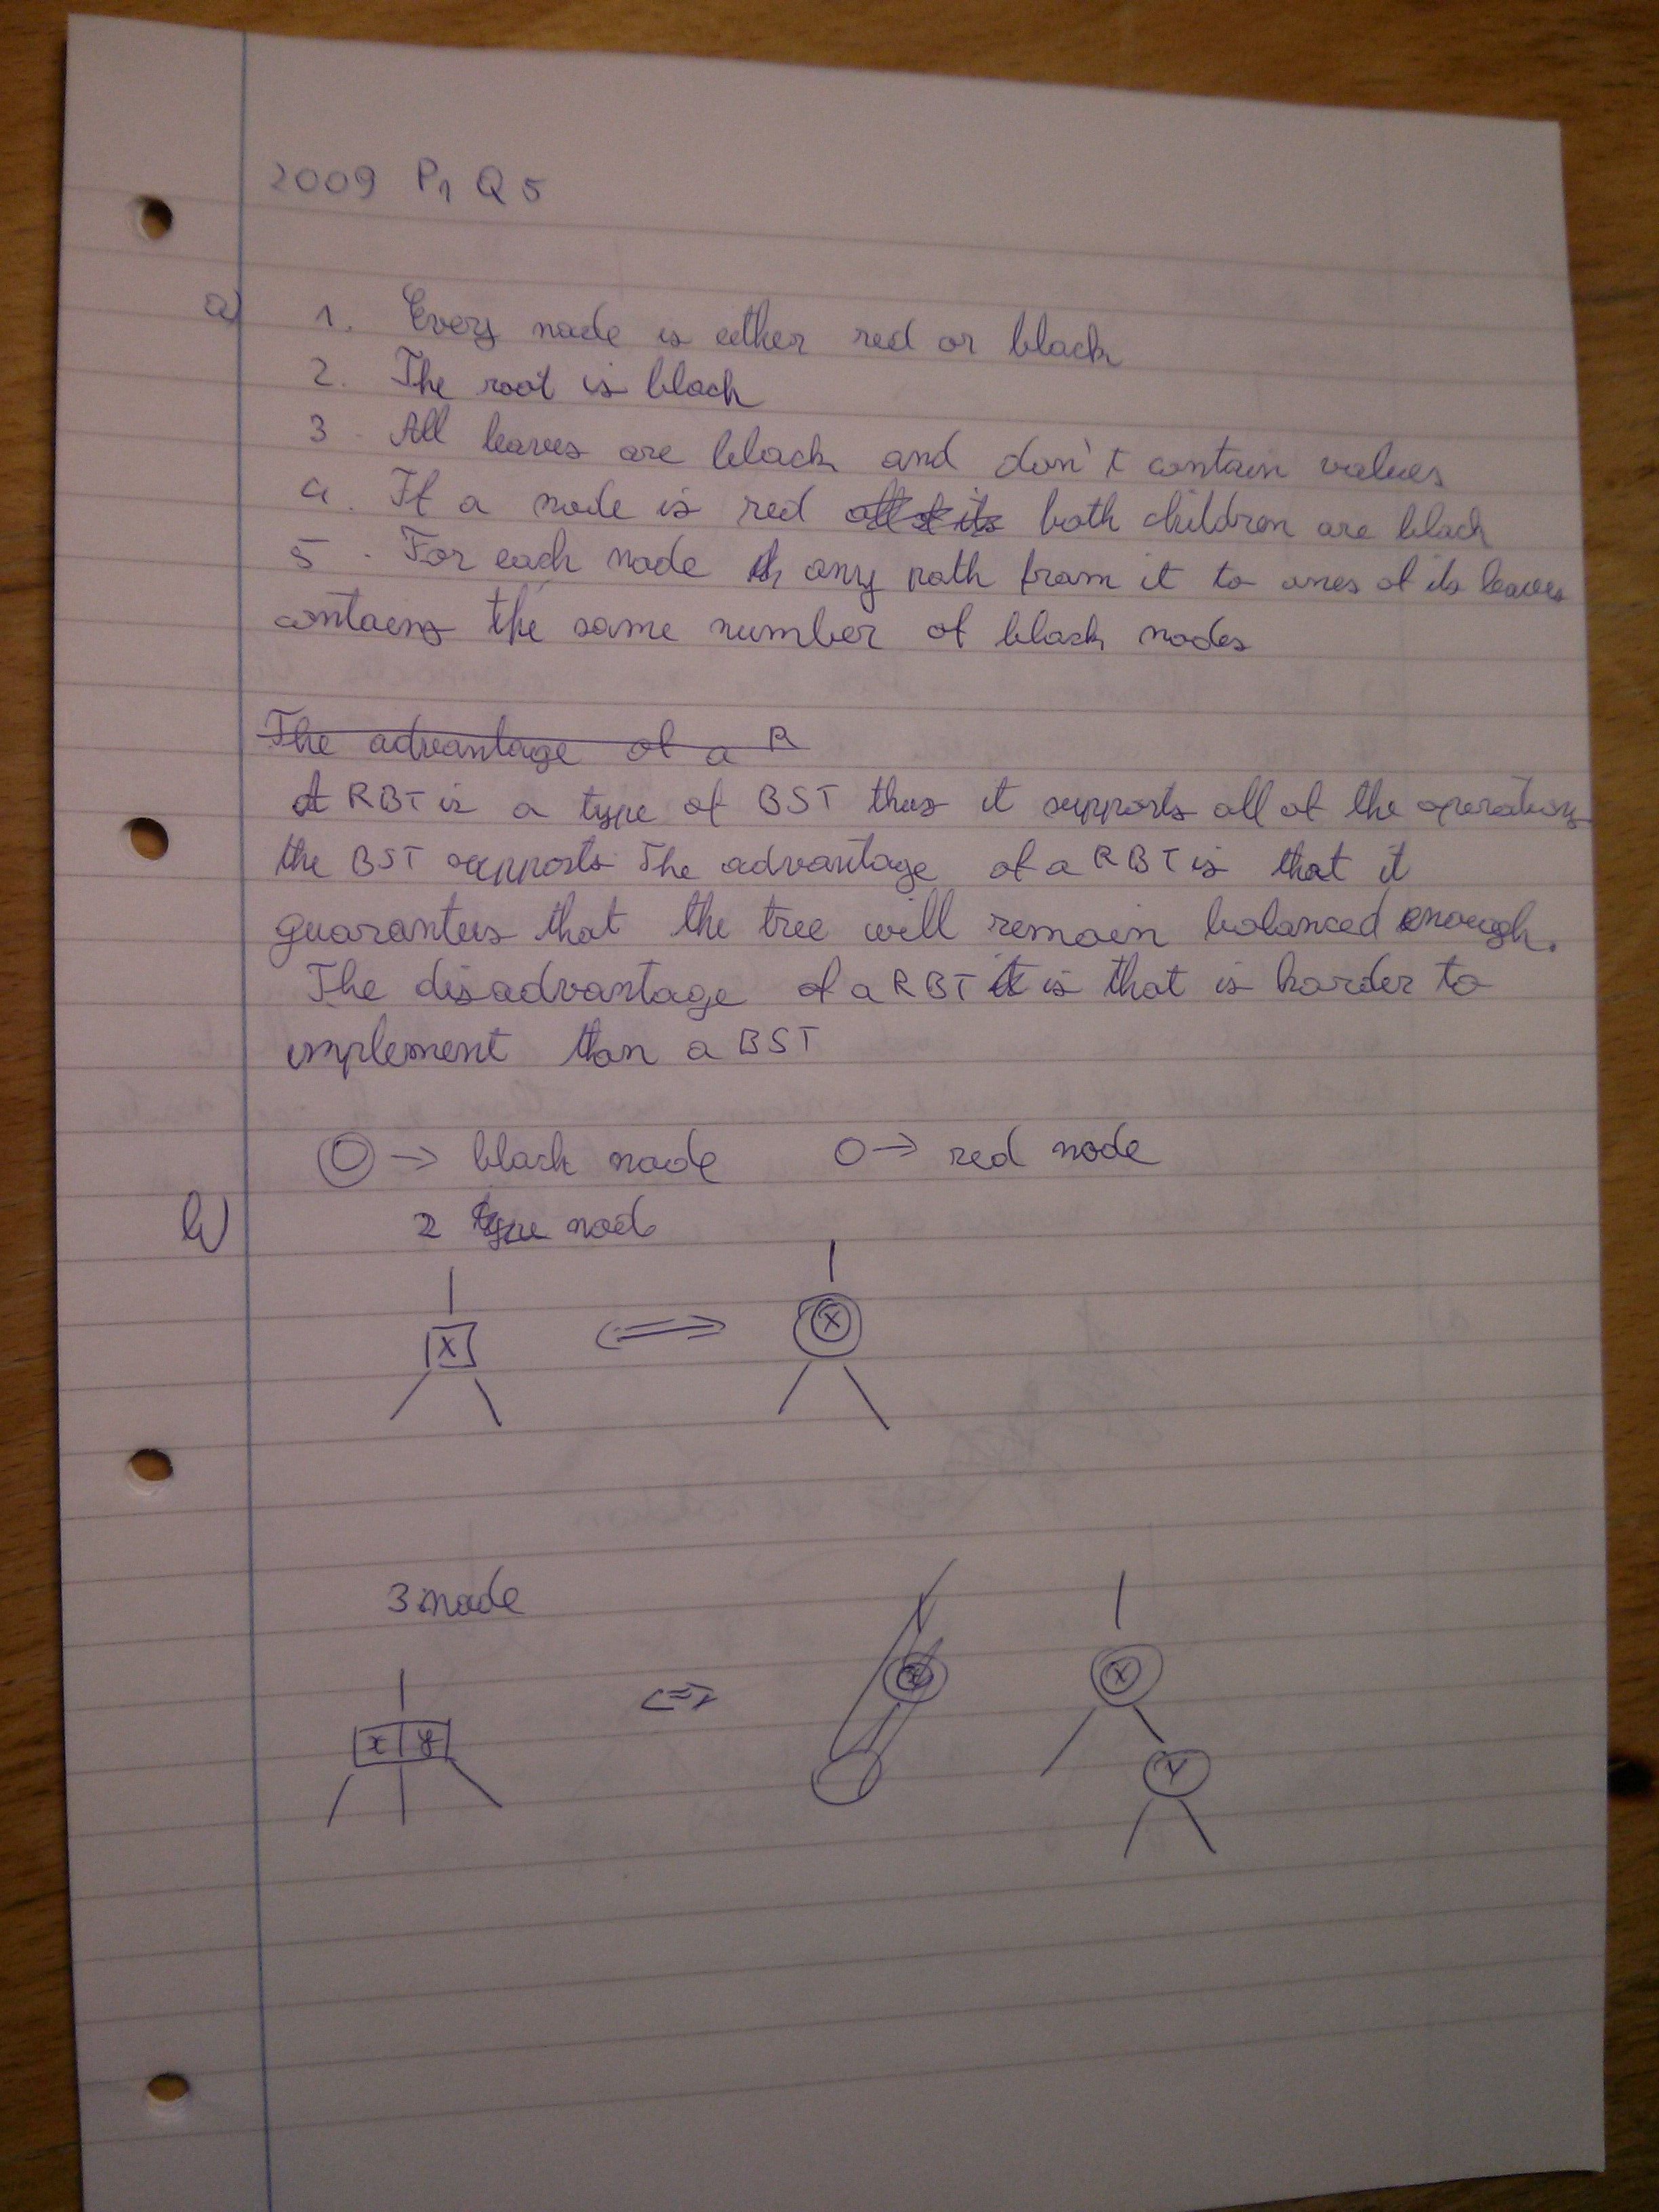 2009 P1 Q5
a) 1. Every node is either red or black
2. The root is black
3. All leaves are black and don't contain values
4. If a node is red both children are black
5. For each node any path from it to ones of its leaves
contains the same number of black nodes
The advantage of a R
A RBT is a type of BST thus it supports all of the operations
the BST supports. The advantage of a RBT is that it
guarantees that the tree will remain balanced enough.
The disadvantage of a RBT is that is harder to
implement than a BST
→ black node → red node
b) 2 node
x x
3 node
x
x y
y